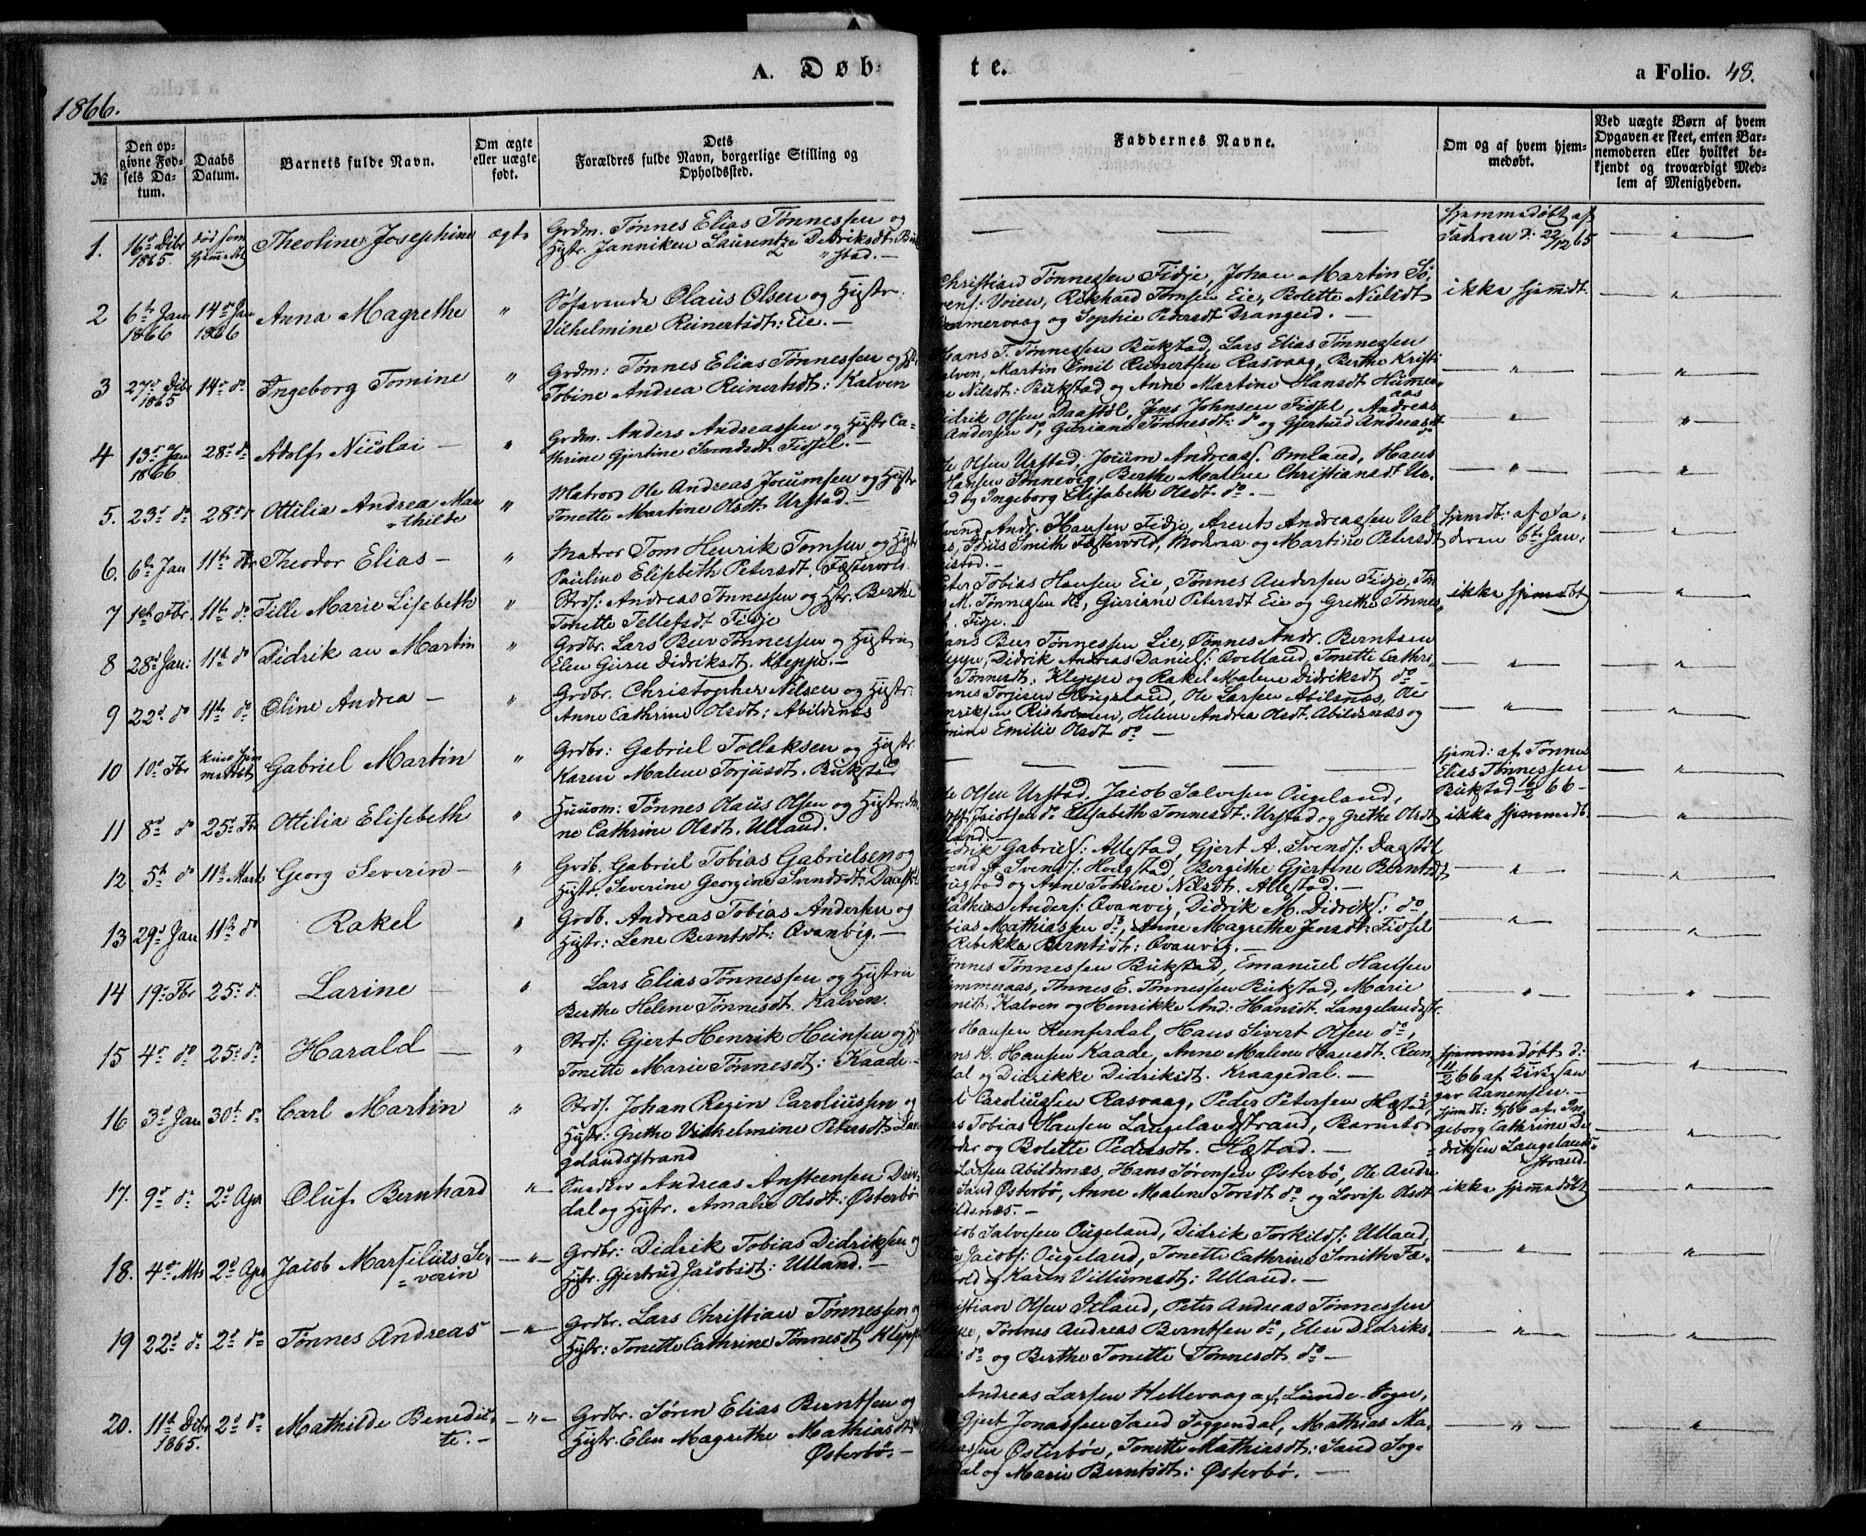 A. Døb-
te.
a Folio. 48.
1866.
№
Den op-
givne Fød-
sels Da-
tum.
Daabs
Datum.
Barnets fulde Navn.
Om ægte
eller uægte
født.
Dets
Forældres fulde Navn, borgerlige Stilling og
Opholdssted.
Faddernes Navne.
Om og af hvem hjem-
medøbt.
Ved uægte Børn af hvem
Opgaven er skeet, enten Bar-
nemoderen eller hvilket be-
kjendt og troværdigt Med-
lem af Menigheden.
1. 16d Dcbr 1865. Theoline Josephine ægte
Grdm. Tønnes Elias Tønnessen og
Hustr. Janniken Laurentze Didriksdt. Buk-
stad. —
Hjemmedøbt af
Faderen d: 22/12 65
2 6te Jan 1866 14de Jan 1866 Anna Magrethe "
Søfarende Olaus Olsen og Hustr:
Vilhelmine Reinertsdt: Eie. —
Christian Tønnessen Fidje, Johan Martin Sø-
rens: Voien, Rickhard Tomsen Eie, Bolette Nielsdt
og Sophie Pedersdt Drangeid. —
ikke hjemdt. — " —
3 27d Dcbr 1865 14d do Ingeborg Tomine "
Grdm: Tønnes Elias Tønnessen og Hstr
Tobine Andrea Reinertsdt: Kalven
Hans T. Tønnessen Bukstad, Lars Elias Tønnessen
Kalven, Martin Emil Reinertsen Rasvaag, Berthe Kristi-
ne Nilsdt: Bukstad og Anne Martine Hansdt Humer-
aas
— " — — " —
4 13d Jan 1866 28d do Adolf Nicolai — "
Grdm. Anders Andreassen og Hustr Ca-
thrine Gjertine Svendsdt Fidsel. —
Didrik Olsen Daastøl, Jens Johnsen Fidsel, Andreas
Andersen do, Guriane Tønnesdt: do og Gjertrud Andreasdt
— " — — " —
5. 23d do 28d do Ottilia Andrea Ma-
thilde "
Matros Ole Andreas Jocumsen og Hustr
Tonette Martine Olsdt Urstad. —
Ole Olsen Urstad, Jocum Andreas: Omland, Hans
Hansen Tønnevig, Berthe Malene Christiansdt Ur-
stad og Ingeborg Elisabeth Olsdt do. —
— " — — " —
6. 6te Jan 11te Fbr Theodor Elias — "
Matros Tom Henrik Tomsen og Hustr
Pauline Elisebeth Petersdt. Fæstervold
Svend Andr. Hansen Fidje, Arents Andreassen Val-
Smith Fæstevold, Moderen og Martine Petersdt
Hjemdt: af Fa-
deren 6te Jan. — " —
7 1ste Fbr. 11te do Tille Marie Lisebeth "
Strds: Andreas Tønnessen og Hstr. Berthe
Tonette Tellefsdt Fidje
Peter Tobias Hansen Eie, Tønnes Andersen Fidje, Tøn-
M. Tønnesen do, Guriane Petersdt Eie og Grethe Tønnes-
dt. Fidje. —
ikke hjemdøbt — " —
8 28d Jan: 11te do Didrik an Martin "
Grdbr. Lars Beer Tønnessen og Hustru
Elen Gurie Didriksdt. Kleppe. —
Hans Beer Tønnessen Lie, Tønnes Andr. Berntsen
Kleppe, Didrik Andreas Daniels: Qvilland, Tonette Cathri-
ne Tønnesdt: Kleppe og Rakel Malene Didriksdt do —
— " — — " —
9 22d do 11te do Oline Andrea — "
Grdbr. Christopher Nilsen og Hustr:
Anne Cathrine Olsdt: Abildsnæs
Tønnes Torjusen Ougeland, Ole Larsen Abilsnæs, Ole
Henriksen Risholmen, Helene Andrea Olsdt. Abildsnæs og
Emilie Olsdt do —
— " — — " —
10 10d Fbr Gabriel Martin "
Grdbr: Gabriel Tollaksen og Hustr.
Karen Malene Torjusdt. Bukstad
— — — — —
Hjemd: af Tønnes
Elias Tønnessen
Bukstad 16/2 66 — — " —
11 8d do 25d Fbr Ottilia Elisebeth "
Huusm: Tønnes Olaus Olsen og Hustr: An-
ne Cathrine Olsdt. Ulland.
Ole Olsen Urstad, Jacob Salvesen Ougeland,
Jacobsen do Elisabeth Tønnesdt: Urstad og Grethe Olsdt
Ulland. —
ikke hjemmedøbt — " —
12 5te do 11te Marts Georg Severin — "
Grdb. Gabriel Tobias Gabrielsen og
Hustr. Severine Georgine Svendsdt: Daastøl
Didrik Gabriels: Allestad, Gjert A. Svends: Daastøl
Svend Svends: Hodgstad, Bergithe Gjertine Berntsdt
og Anne Tomine Nilsdt. Allestad. —
— " — — " —
13 29d Jan 11te do Rakel "
Grdb. Andreas Tobias Andersen og
Hustr: Lene Berntsdt: Qvanvig. —
Mathias Anders: Qvanvig, Didrik M. Didriks: do
Tobias Mathiassen do, Anne Magrethe Jensdt: Fidsel
Rebikka Berntsdt: Qvanvig. —
— " — — " —
14 19d Fbr 25d do Larine — "
Lars Elias Tønnessen og Hustru
Berthe Helene Tønnesdt. Kalven.
Tønnes Tønnessen Bukstad, Emanuel Hansen
Hummeraas, Tønnes E. Tønnessen Bukstad, Marie
Kalven og Henrikke And: Hansdt. Langelandsstr.
— " — — " —
15 4d do 25d do Harald — "
Strds: Gjert Henrik Heinsen og Hstr
Tonette Marie Tønnesdt: Kaade —
Hansen Kumlerdal, Hans Sivert Olsen do,
Hans K. Hansen Kaade, Anne Malene Hansdt. Kum-
dal og Didrikke Didriksdt. Kraagedal. —
Hjemmedøbt d:
11/2 66 af
Aanensen. — — " —
16 3d Jan 30te do Carl Martin "
Strds. Johan Regin Caroliussen og
Hustr: Grethe Vilhelmine Petersdt. Lan-
gelandsstrand
Carl Caroliussen Rasvaag, Peder Petersen Hæstad,
Lars Tobias Hansen Langelandstrand, Barnets
Moder og Bolette Pedersdt. Hæstad. —
Hjemdt: af In-
geborg Cathrine Di-
driksen Langelands-
strand. — " —
17. 9d do 2d Apr Oluf Bernhard — " —
Snedker Andreas Ansteensen Drivs-
dal og Hustr. Amalie Olsdt: Østerbø
Ole Larsen Abildsnæs, Hans Sørensen Østerbø, Ole Andr.
Sand Østerbø, Anne Malene Toresdt do og Lovise Olsdt
Abildsnæs. —
ikke hjemmedøbt — " —
18. 4d Mts 2d Apr Jacob Marselius Se-
verin — " —
Grdbr: Didrik Tobias Didriksen og
Hustr. Gjertrud Jacobsdt: Ulland. —
Jacob Salvesen Ougeland, Didrik Torkilds: Ulland,
Jacobs: Ougeland, Tonette Cathrine Smith Fæ-
stevold og Karen Villumsdt: Ulland. —
— " — — " —
19 22d do 2d do Tønnes Andreas — " —
Grdbr. Lars Christian Tønnessen og
Hustr: Tonette Cathrine Tønnesdt Kleppe
Christian Olsen Itland, Peter Andreas Tønnessen
Kleppe, Tønnes Andreas Berntsen do, Elen Didriks-
datter do og Berthe Tonette Tønnesdt do —
— " — — " —
20. 11te Dcbr 1865. 2d do Mathilde Benedic-
te. — — " —
Grdbr. Søren Elias Berntsen og
Hustr. Elen Magrethe Mathiasdtr
Østerbø. —
Andreas Larsen Hellevaag af Lunde Sogn,
Gjert Jonassen Sand Foggendal, Mathias Ma-
thiassen Østerbøe, Tonette Mathiasdt: Sand Fog-
gendal og Marie Berntsdt: Østerbø. —
— " — — " —